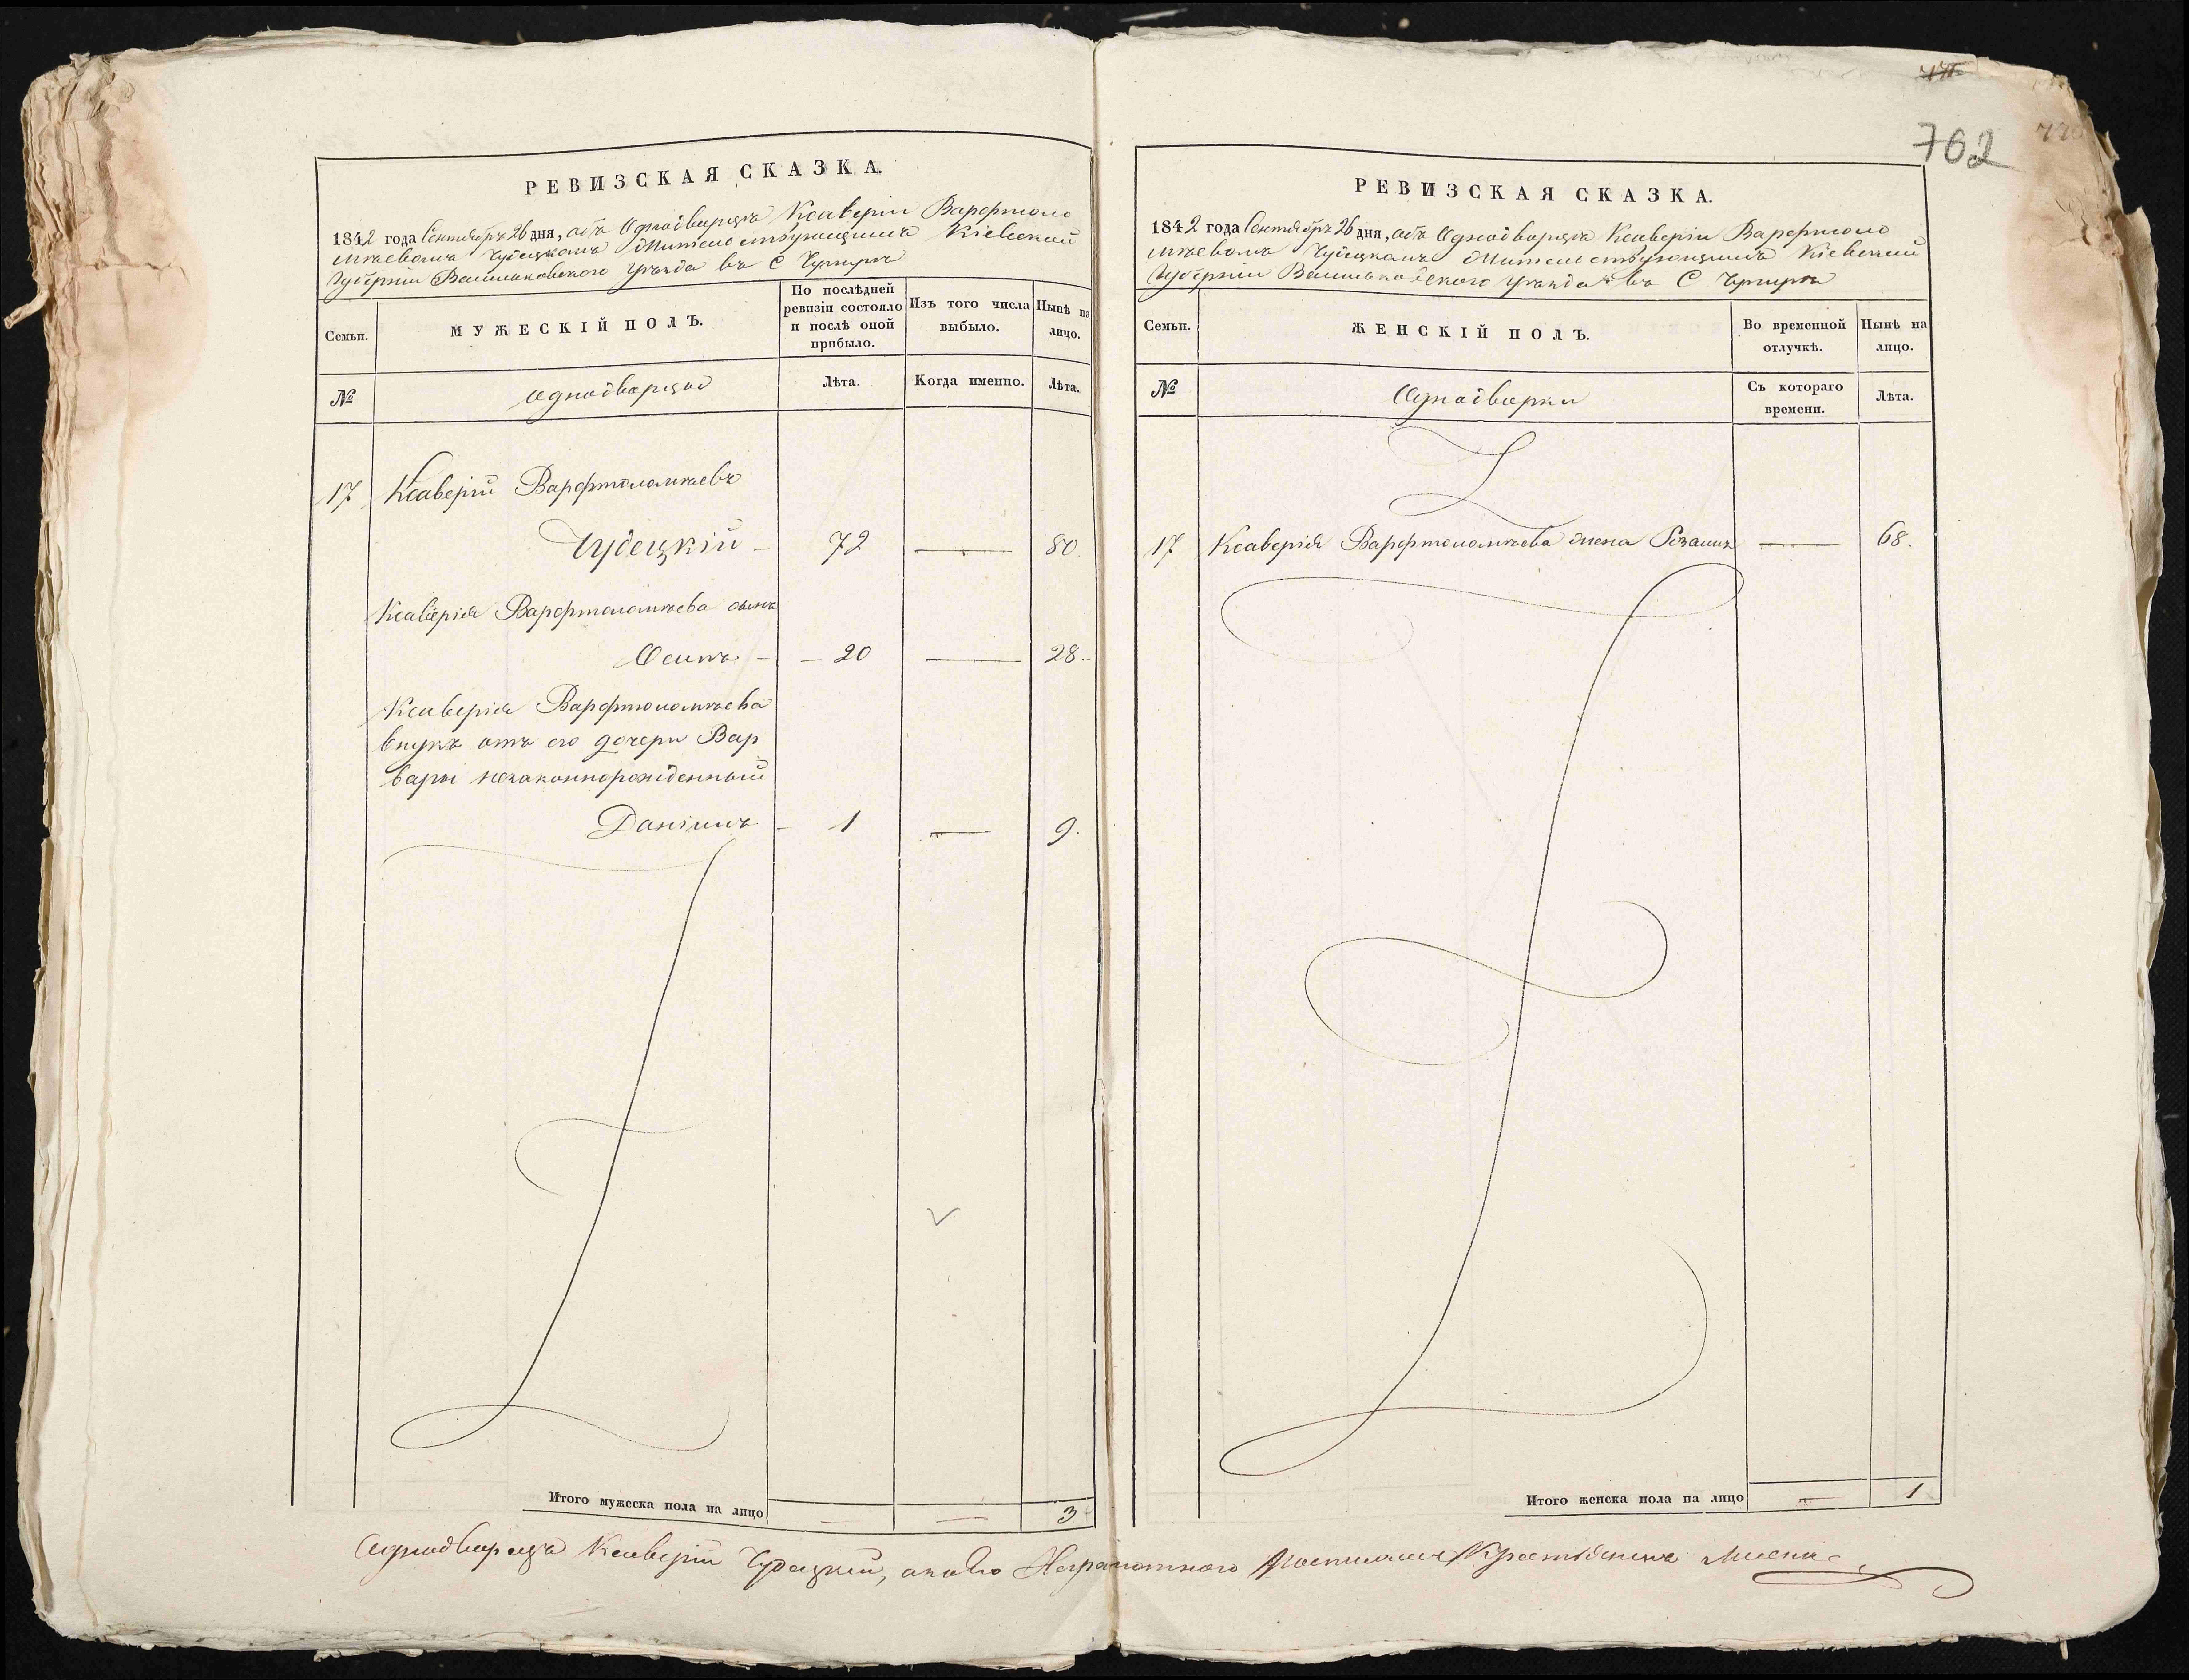 РЕВИЗСКАЯ СКАЗКА.
1842 года Сентября 26 дня, объ Однодворцѣ Ксаверіи Варфтоло
мѣевомъ Чудецкомъ Жительствующимъ Кіевской
Губерніи Васильковскаго уѣзда въ С
Семьи.
МУЖЕСКІЙ ПОЛЪ.
По послѣдней ревизіи состояло и послѣ оной прибыло.
Изъ того числа выбыло.
Нынѣ на лицо.
№
Однодворцы
Лѣта.
Когда именно.
Лѣта.
17 Ксаверій Варфтоломѣевъ
Чудецкій 72 — 80.
Ксаверія Варфтоломѣева сынъ
Осипъ — 20 — 28.
Ксаверія Варфтоломѣева
внукъ отъ его дочери Вар
вары незаконнорожденный
Даніилъ — 1 — 9.
Итого мужеска пола на лицо — — 3
762
РЕВИЗСКАЯ СКАЗКА.
1842 года Сентября 26 дня, объ Однодворцѣ Ксаверіи Варфтоло
мѣевомъ Чудецкомъ Жительствующимъ Кіевской
Губерніи Васильковскаго уѣзда въ С
Семьи.
ЖЕНСКІЙ ПОЛЪ.
Во временной отлучкѣ.
Нынѣ на лицо.
№
Однодворки
Съ котораго времени.
Лѣта.
17 Ксаверія Варфтоломѣева жена Розалия — 68.
Итого женска пола на лицо — 1
Однодворецъ Ксаверій Чудецкій, а за него Неграмотнаго